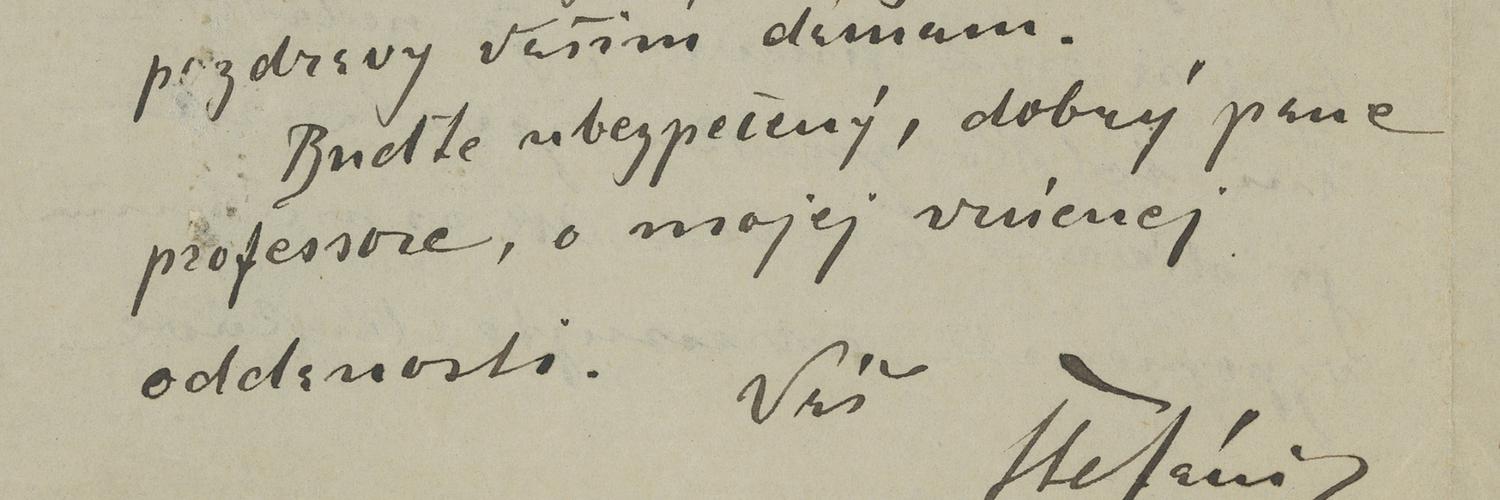 pozdravy Vašim damam.
Buďte ubezpečený, dobrý pane
professore, o mojej vrúcnej
oddanosti.
Váš
Štefánik